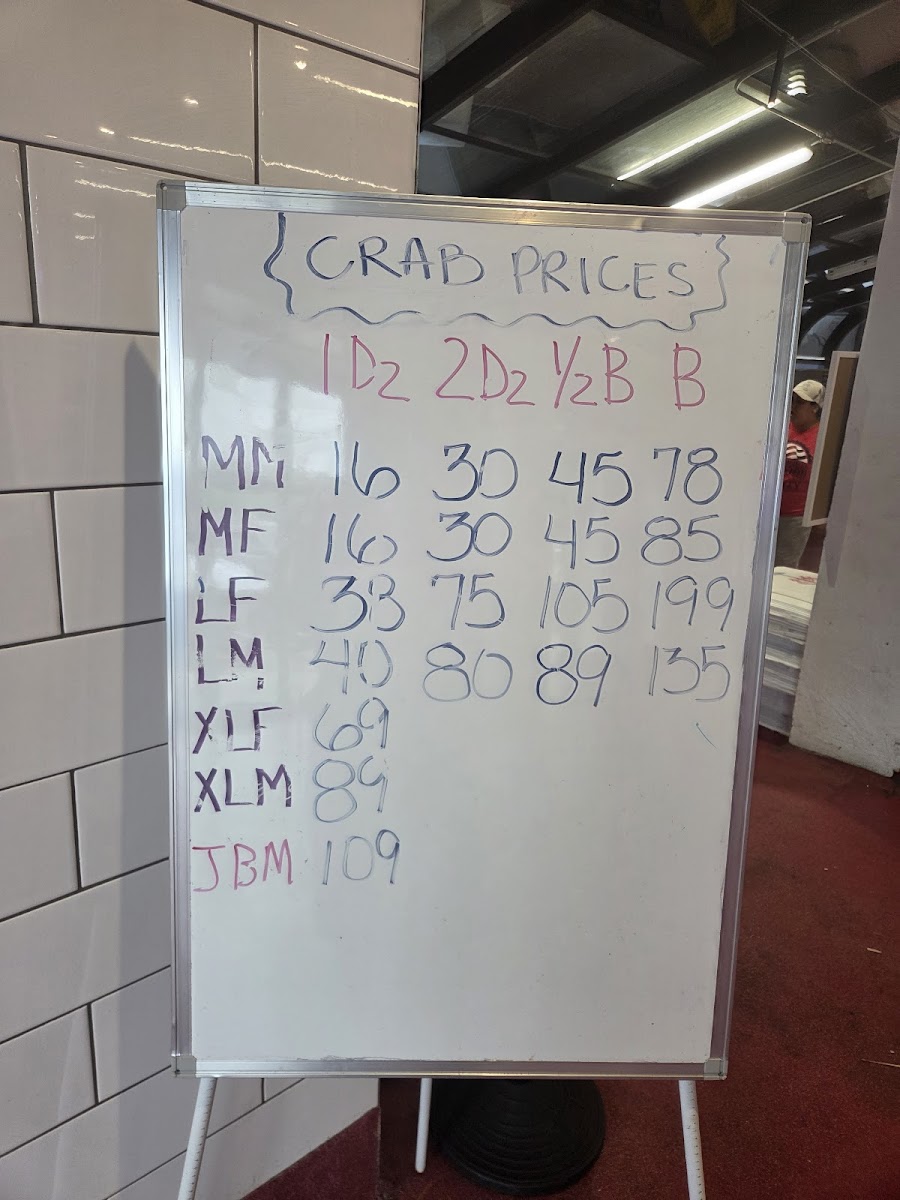 {CRAB PRICES}
1Dz 2Dz 1/2B B
MM 16 30 45 78
MF 16 30 45 85
LF 38 75 105 199
LM 40 80 89 135
XLF 69
XLM 89
JBM 109